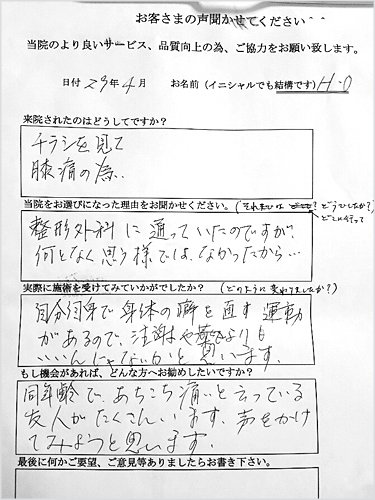 お客さまの声聞かせてください＾＾
当院のより良いサービス、品質向上の為、ご協力をお願い致します。
日付 29年4月 お名前(イニシャルでも結構です) H.O
来院されたのはどうしてですか？
チラシを見て
膝痛の為..
当院をお選びになった理由をお聞かせください。(それまでは どうでしたか?
どこに行って
整形外科に通っていたのですが
何となく思う様では、なかったから…
実際に施術を受けてみていかがでしたか？ (どのように変わりましたか?)
自分自身で身体の癖を直す運動
があるので、注射や薬よりも
いいんじゃないかと思います。
もし機会があれば、どんな方へお勧めしたいですか？
同年齢で、あちこち痛いと云っている
友人がたくさんいます、声をかけ
てみようと思います。
最後に何かご要望、ご意見等ありましたらお書き下さい。